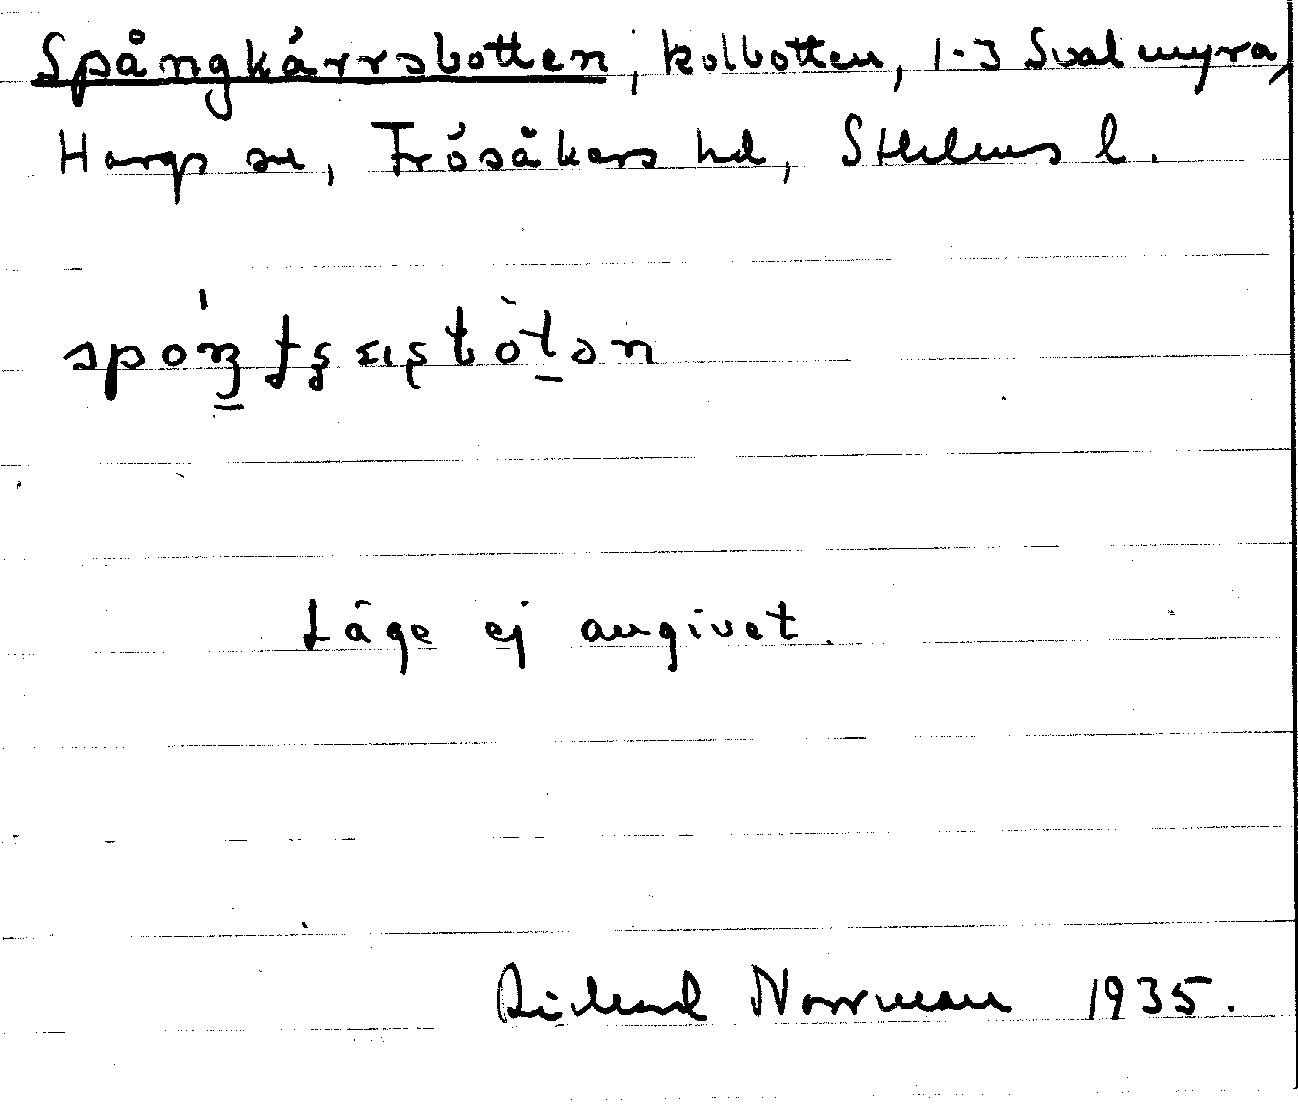 Spångkärrsbotten, kolbotten, 1-3 Svalmyra,
Hargs sn, Frösåkers hd, Sthlms l.
Läge ej angivet.
Richard Norrman 1935.